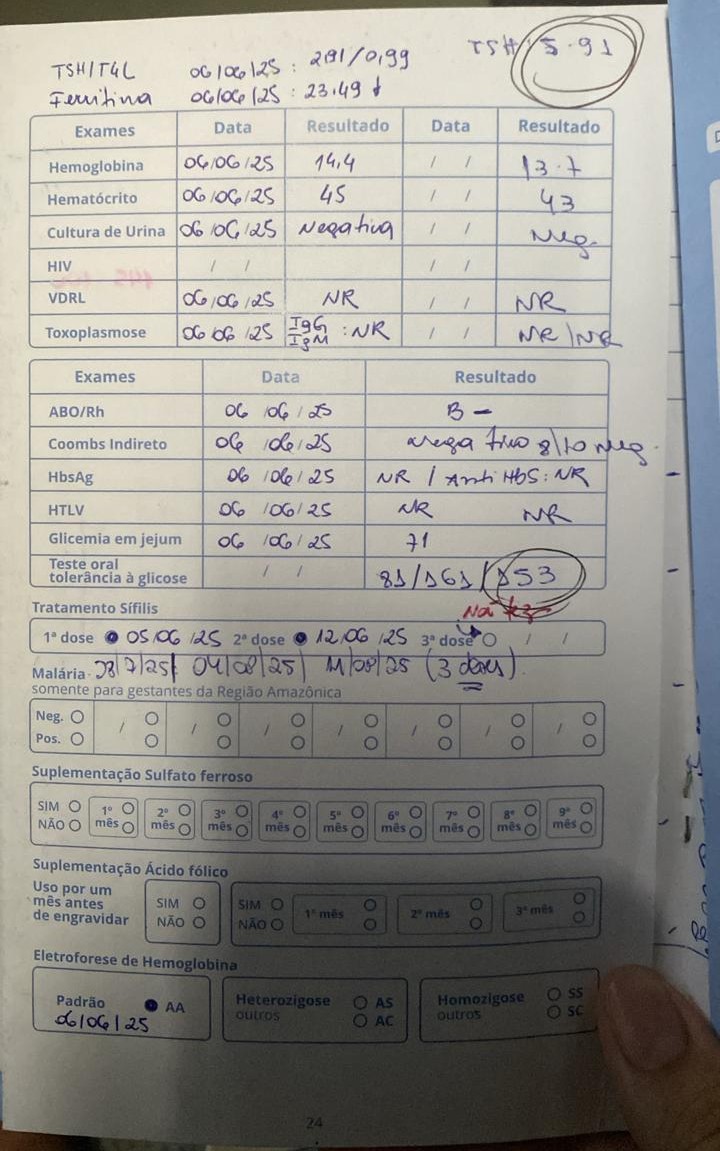 TSH/T4L 06/06/25 : 2,91/0,99 TSH: 5.91
Ferritina 06/06/25 : 23.49 ↓
Exames Data Resultado Data Resultado
Hemoglobina 06/06/25 14,4 / / 13.7
Hematócrito 06/06/25 45 / / 43
Cultura de Urina 06/06/25 Negativa / / Neg.
HIV / / / /
VDRL 06/06/25 NR / / NR
Toxoplasmose 06/06/25 IgG IgM : NR / / NR/NR
Exames Data Resultado
ABO/Rh 06/06/25 B –
Coombs Indireto 06/06/25 negativo 8/10 neg.
HbsAg 06/06/25 NR / Anti Hbs: NR
HTLV 06/06/25 NR NR
Glicemia em jejum 06/06/25 71
Teste oral
tolerância à glicose / / 81/161/153
Tratamento Sífilis
1ª dose 05/06/25 2ª dose 12/06/25 3ª dose / /
Malária 28/7/25 | 04/08/25 | 11/08/25 (3 doses).
somente para gestantes da Região Amazônica
Neg. / / / / / / /
Pos.
Suplementação Sulfato ferroso
SIM 1º 2º 3º 4º 5º 6º 7º 8º 9º
NÃO mês mês mês mês mês mês mês mês mês
Suplementação Ácido fólico
Uso por um
mês antes
de engravidar
SIM SIM 1º mês 2º mês 3º mês
NÃO NÃO
Eletroforese de Hemoglobina
Padrão AA Heterozigose AS Homozigose SS
06/06/25 outros AC outros SC
24